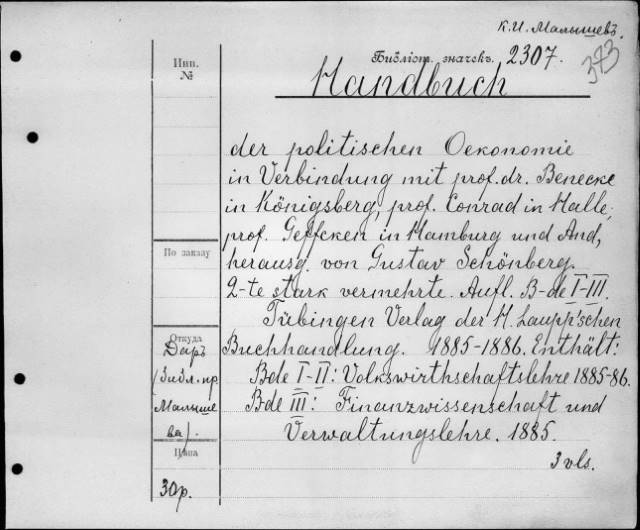 К.И. Малышевъ.
Библіот. значекъ. 2307.
373
Инв.
№
Handbuch
der politischen Oekonomie
in Verbindung mit prof. dr. Benecke
in Königsberg, prof. Conrad in Halle,
prof. Geffcken in Hamburg und And,
herausg. von Gustav Schönberg.
2-te stark vermehrte. Aufl. B-de I-III.
Tübingen Verlag der H. Laupp'schen
Buchhandlung. 1885-1886. Enthält:
Bde I-II: Volkswirthschaftslehre 1885-86.
Bde III: Finanzwissenschaft und
Verwaltungslehre. 1885.
3 vls.
По заказу
Откуда
Даръ
(Библ. пр.
Малыше
ва).
Цѣна
30р.